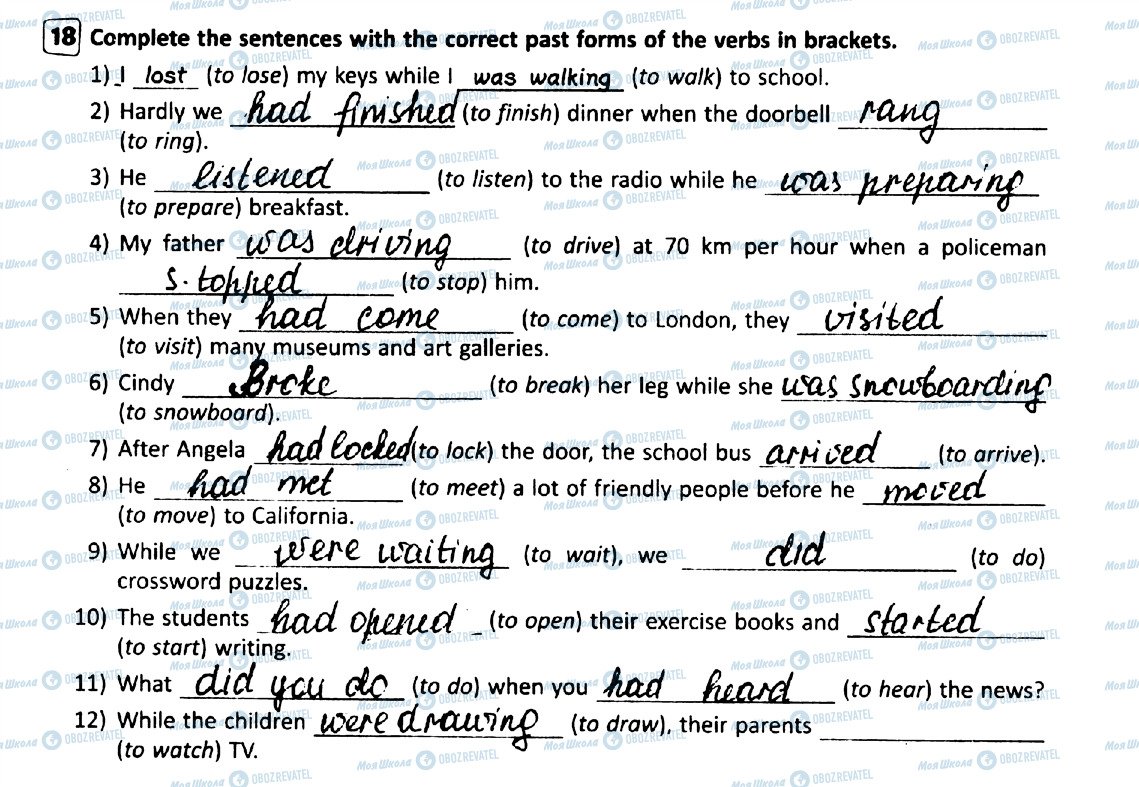 18 Complete the sentences with the correct past forms of the verbs in brackets.
1) I lost (to lose) my keys while I was walking (to walk) to school.
2) Hardly we had finished (to finish) dinner when the doorbell rang
(to ring).
3) He listened (to listen) to the radio while he was preparing
(to prepare) breakfast.
4) My father was driving (to drive) at 70 km per hour when a policeman
s.topped (to stop) him.
5) When they had come (to come) to London, they visited
(to visit) many museums and art galleries.
6) Cindy Broke (to break) her leg while she was snowboarding
(to snowboard).
7) After Angela had locked (to lock) the door, the school bus arrived (to arrive).
8) He had met (to meet) a lot of friendly people before he moved
(to move) to California.
9) While we were waiting (to wait), we did (to do)
crossword puzzles.
10) The students had opened (to open) their exercise books and started
(to start) writing.
11) What did you do (to do) when you had heard (to hear) the news?
12) While the children were drawing (to draw), their parents
(to watch) TV.